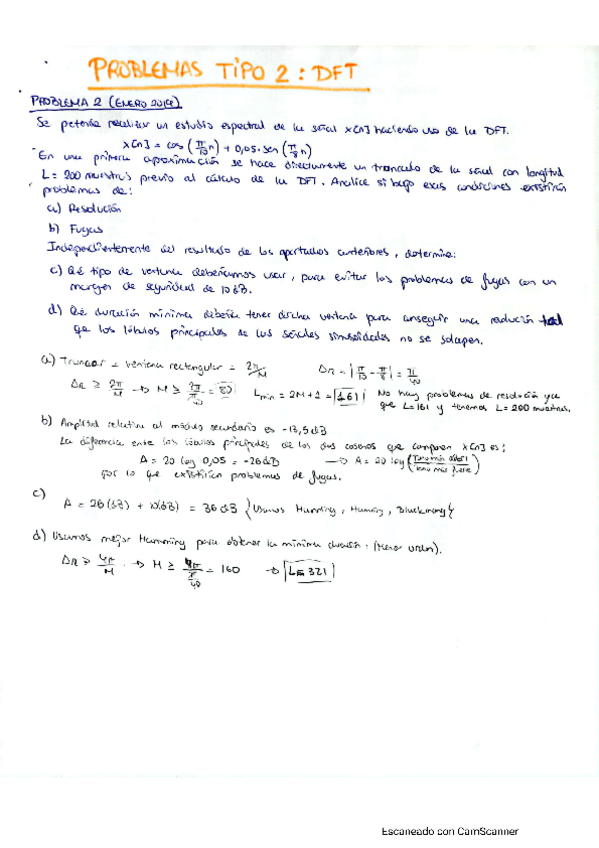 PROBLEMAS TIPO 2: DFT
PROBLEMA 2 (ENERO 2014).
Se pretende realizar un estudio espectral de la señal x[n] haciendo uso de la DFT.
x[n] = cos (π/10 n) + 0,05· sen (π/8 n)
En una primera aproximación se hace directamente un truncado de la señal con longitud
L = 200 muestras previo al cálculo de la DFT. Analice si bajo esas condiciones existirán
problemas de:
a) Resolución
b) Fugas
Independientemente del resultado de los apartados anteriores, determine:
c) Qué tipo de ventana deberíamos usar, para evitar los problemas de fugas con un
margen de seguridad de 10 dB.
d) Qué duración mínima debería tener dicha ventana para conseguir una resolución tal
que los lóbulos principales de las señales sinusoidales no se solapen.
a) Truncar = ventana rectangular = 2π/M ΔΩ = |π/10 - π/8| = π/40
ΔΩ ≥ 2π/M → M ≥ 2π/(π/40) = 80 Lmin = 2M+1 = 161 No hay problemas de resolución ya
que L=161 y tenemos L=200 muestras.
b) Amplitud relativa al máximo secundario es -13,5 dB
La diferencia entre los lóbulos principales de los dos cosenos que componen x[n] es:
A = 20 log 0,05 = -26 dB → A = 20 log
por lo que existirían problemas de fugas.
c)
A = 26 (dB) + 10 (dB) = 36 dB {Usamos Hanning, Haming, Blackman}
d) Usamos mejor Hamming para obtener la mínima duración. (Menor orden).
ΔΩ ≥ 4π/M → M ≥ 4π/(π/40) = 160 → L= 321
Escaneado con CamScanner